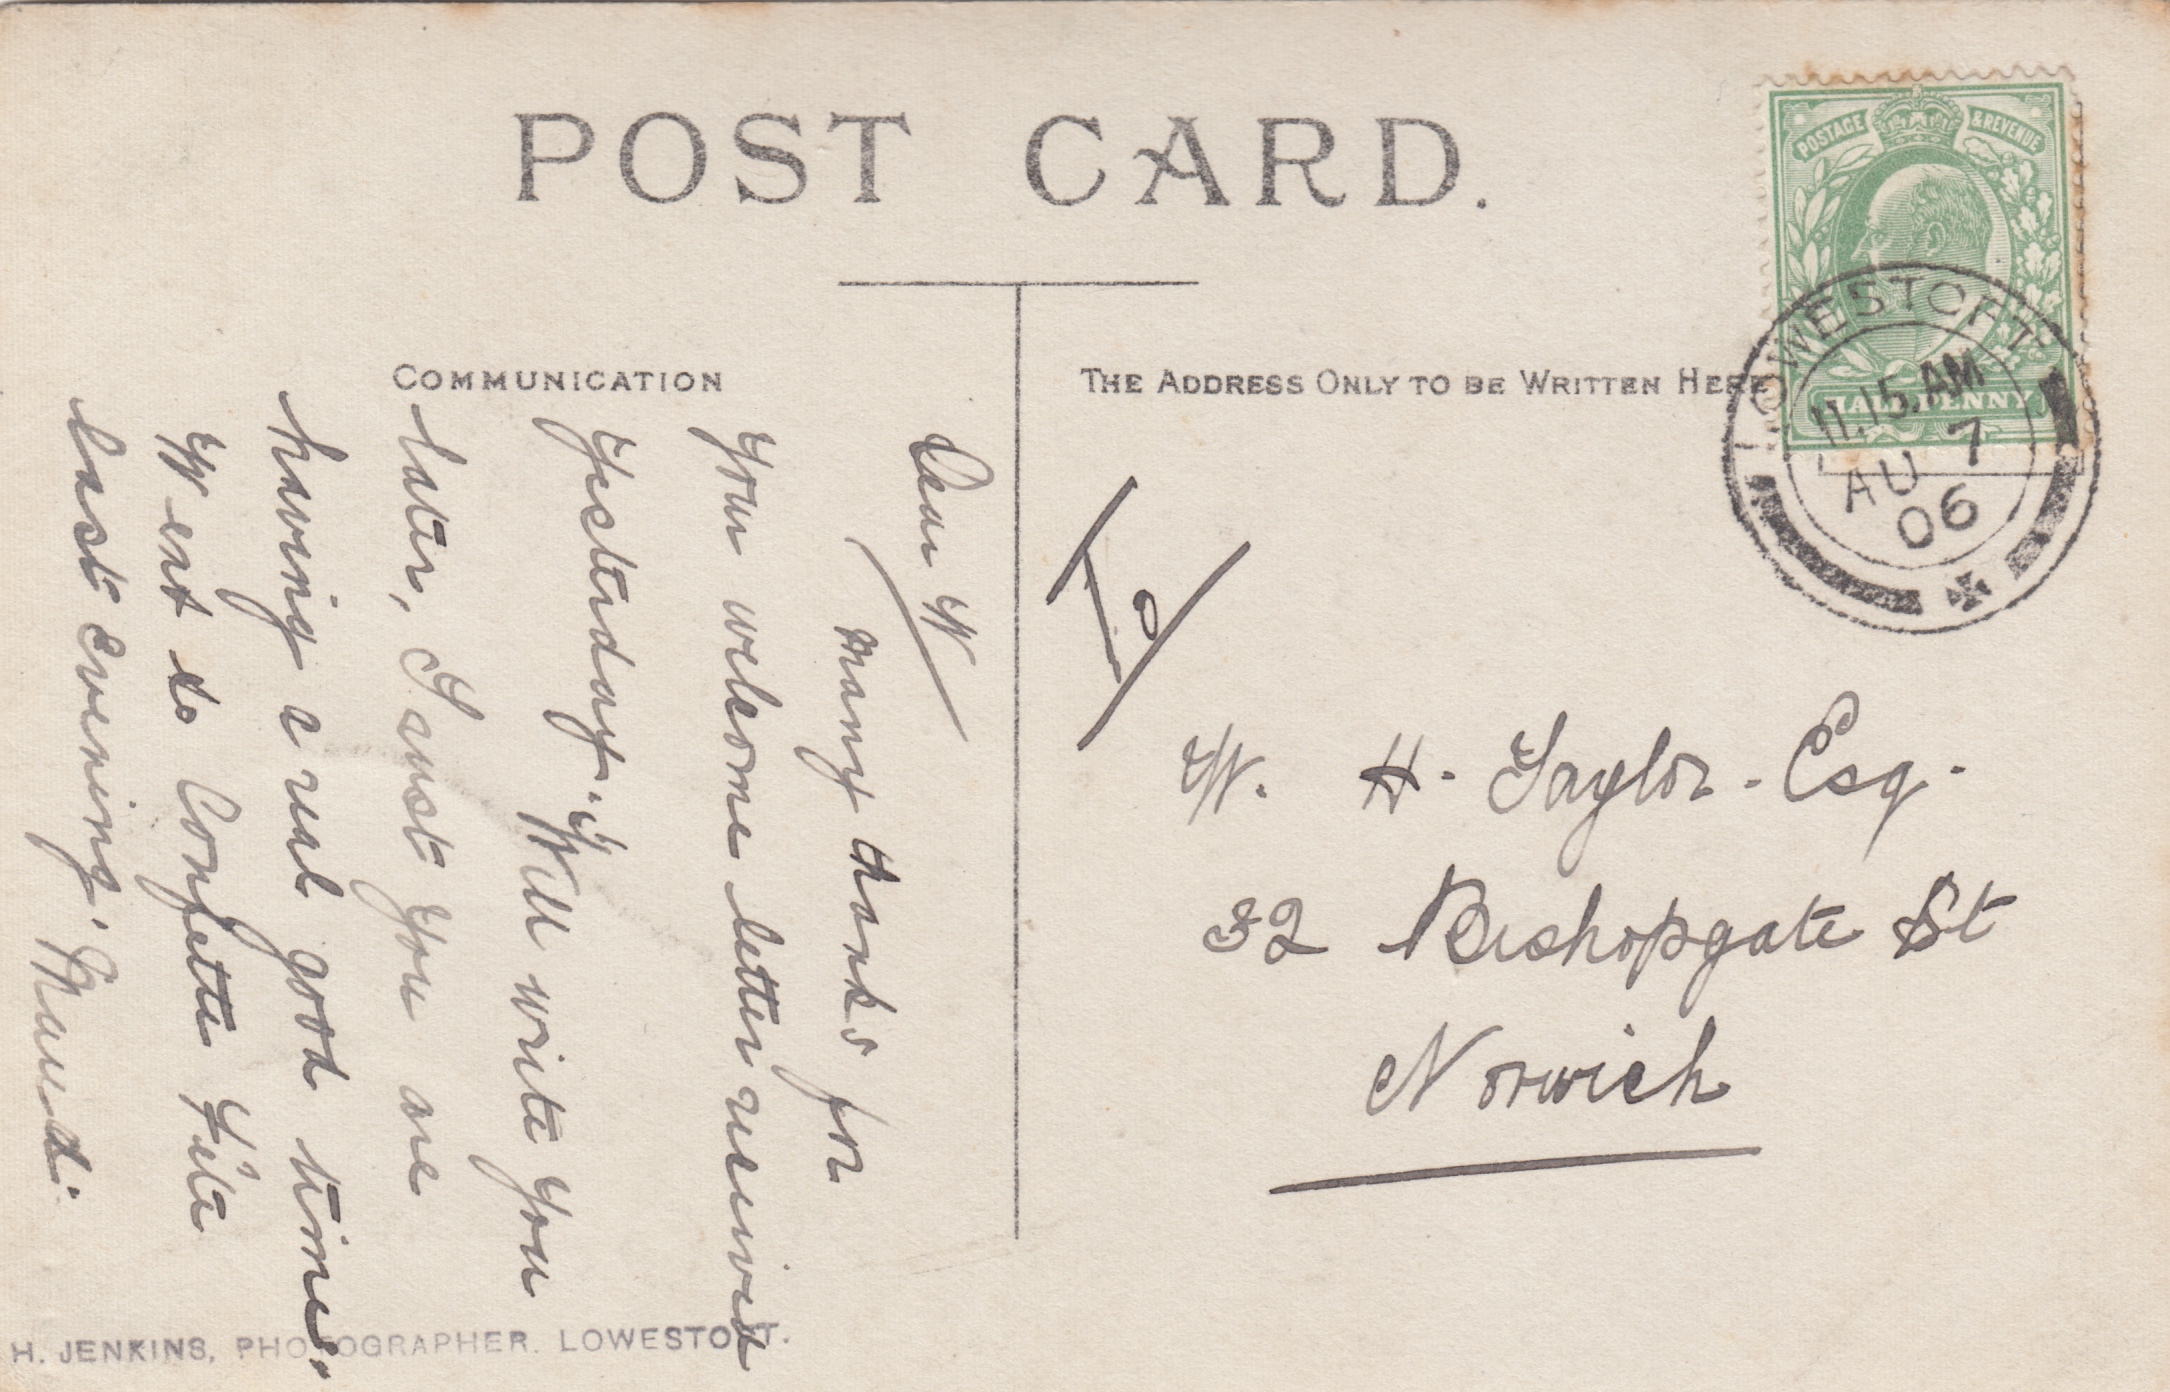 POST CARD.
COMMUNICATION
THE ADDRESS ONLY TO BE WRITTEN HERE
POSTAGE & REVENUE
HALFPENNY
LOWESTOFT
11.15.AM
AU 7
06
To
W. H. Taylor. Esq.
32 Bishopgate St
Norwich
Dear W
Many thanks for
your welcome letter received
yesterday. Will write you
later, I trust you are
having a real good time.
Went to Confetti Fête
last evening. Maud.
H. JENKINS, PHOTOGRAPHER. LOWESTOFT.